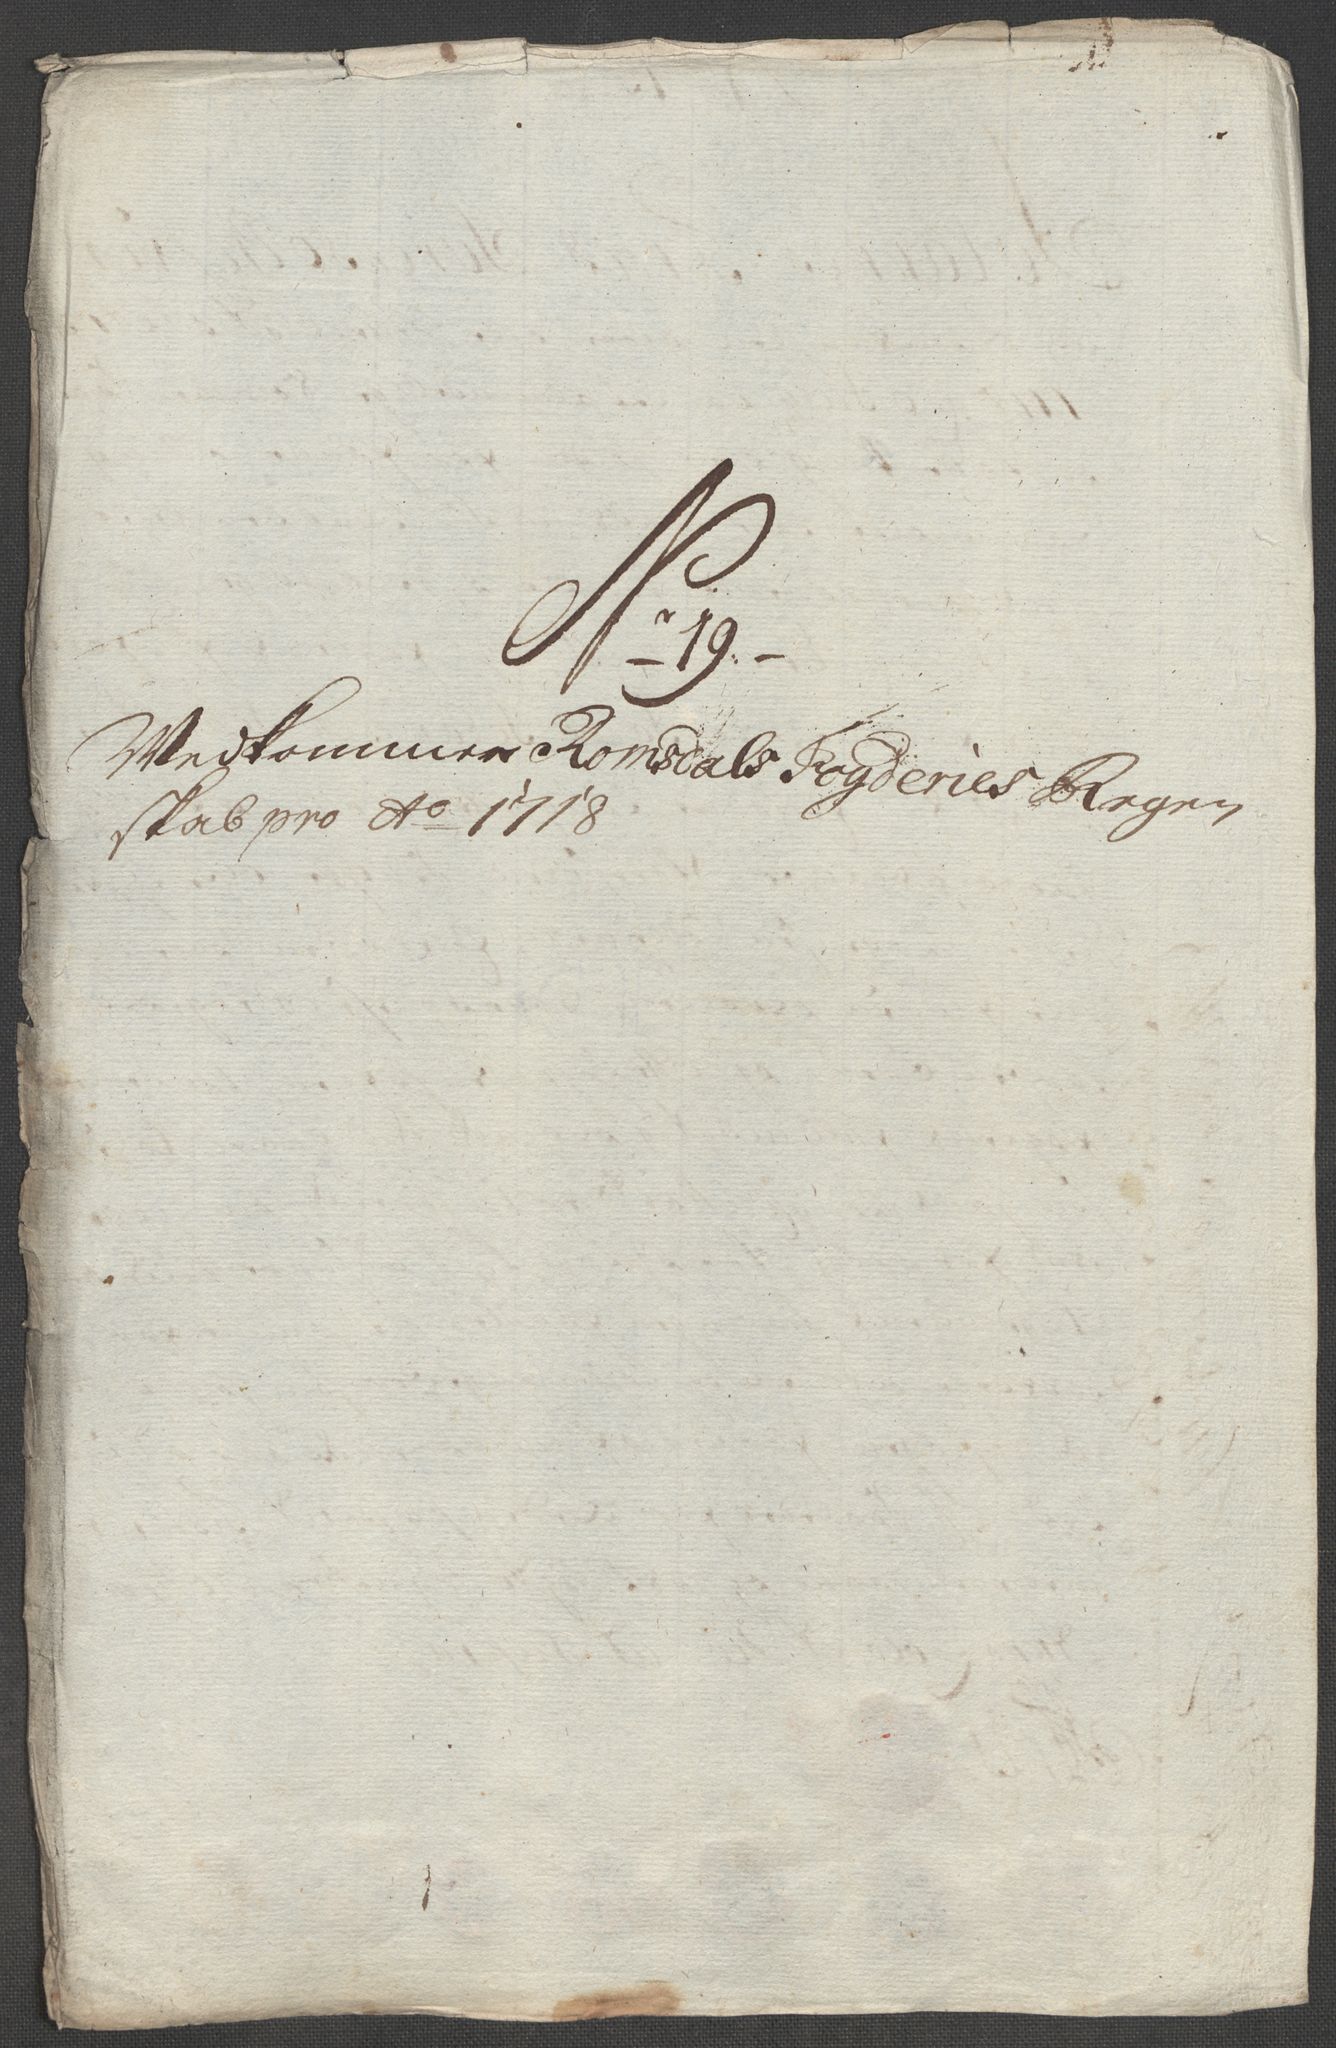 Nr 19.
Vedkommer Romsdals Fogderies Regen
skab pro Ao 1718